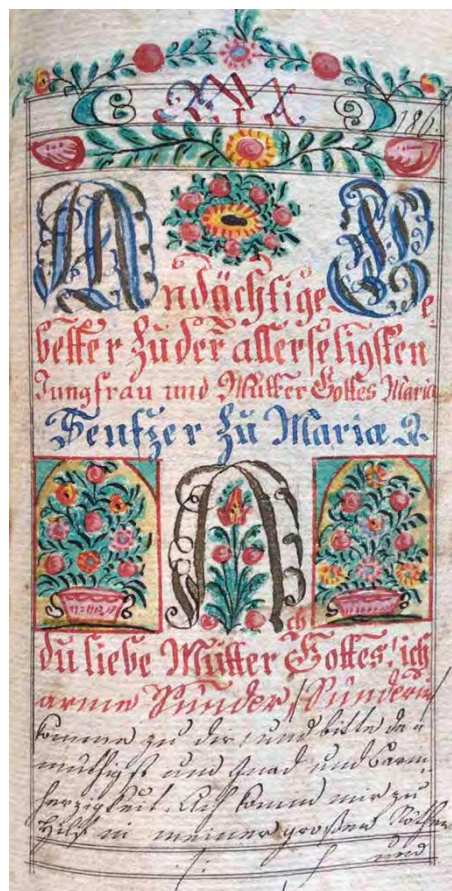 186.
Andächtige Ge=
better zu der allerseligsten
Jungfrau und Mutter Gottes Maria
Seufzer zu Mariæ
Ach
du liebe Mutter Gottes! ich
arme Sünder /Sünderin/
komme zu dir, und bitte de=
müthigst um Gnad und Barm=
herzigkeit. Ach komm mir zu
Hilf in meiner großen Nöthen
und